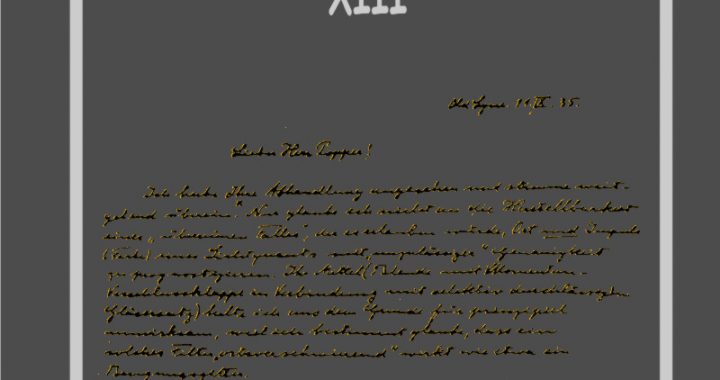 XIII
Old Lyme. 11.IX.35.
Lieber Herr Popper!
Ich habe Ihre Abhandlung angesehen und stimme weit-
gehend überein.* Nur glaube ich nicht an die Herstellbarkeit
eines „überreinen Falles", der es erlauben würde, Ort und Impuls
(Farbe) eines Lichtquants mit „unzulässiger" Genauigkeit
zu prognostizieren. Ihr Mittel (Blende mit Momentan-
Verschlussklappe in Verbindung mit selektiv durchlässigem
Gläsersatz) halte ich aus dem Grunde für prinzipiell
unwirksam, weil ich bestimmt glaube, dass ein
solches Filter „ortsverschmierend" wirkt wie etwa ein
Beugungsgitter.